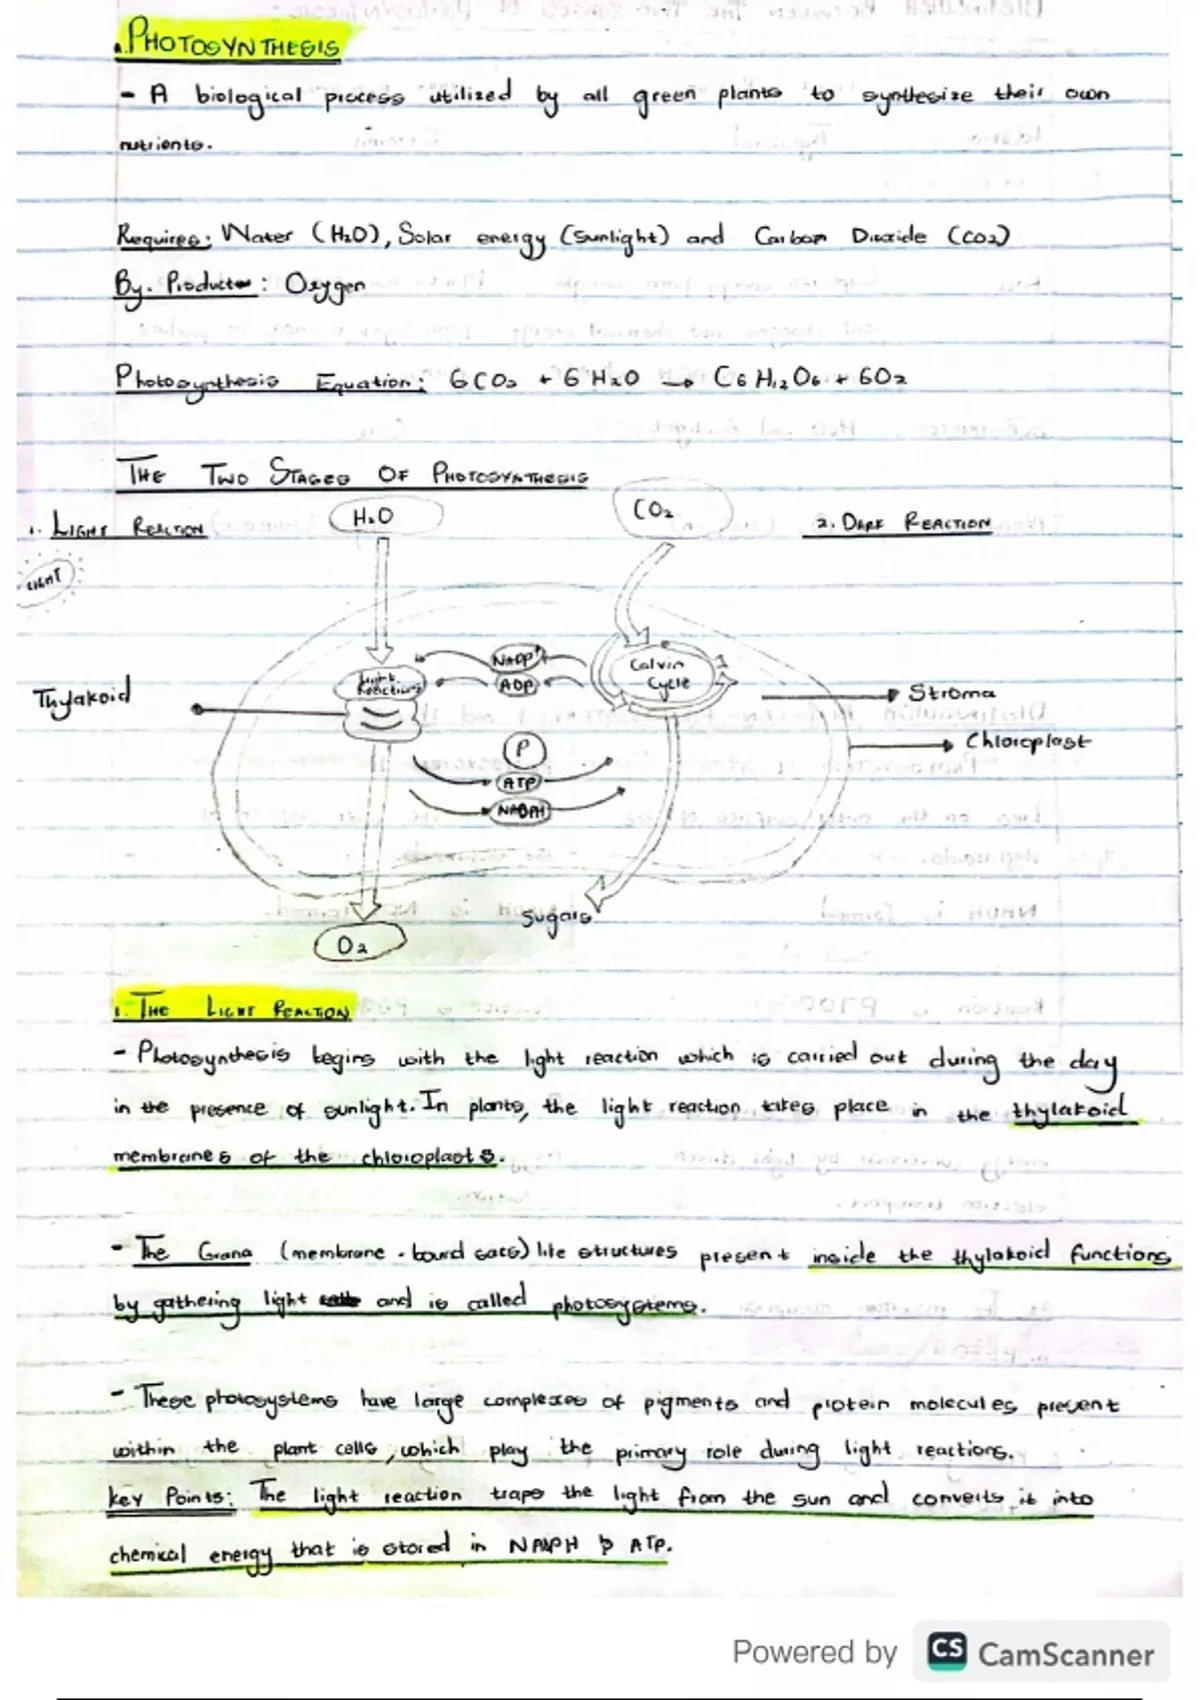 PHOTOSYNTHESIS
- A biological process utilized by all green plants to synthesize their own
nutrients.
Requires: Water (H2O), Solar energy (Sunlight) and Carbon Dioxide (CO2)
By-Products: Oxygen
Photosynthesis Equation: 6CO2 + 6H2O → C6H12O6 + 6O2
THE TWO STAGES OF PHOTOSYNTHESIS
1. LIGHT REACTION
H2O
CO2
2. DARK REACTION
LIGHT
NADP+
ADP
Light Reactions
Calvin Cycle
Thylakoid
Stroma
Chloroplast
P
ATP
NADPH
Sugars
O2
1. THE LIGHT REACTION
- Photosynthesis begins with the light reaction which is carried out during the day
in the presence of sunlight. In plants, the light reaction takes place in the thylakoid
membranes of the chloroplasts.
- The Grana (membrane-bound sacs) like structures present inside the thylakoid functions
by gathering light and is called photosystems.
- These photosystems have large complexes of pigments and protein molecules present
within the plant cells, which play the primary role during light reactions.
Key Points: The light reaction traps the light from the sun and converts it into
chemical energy that is stored in NADPH & ATP.
Powered by CS CamScanner